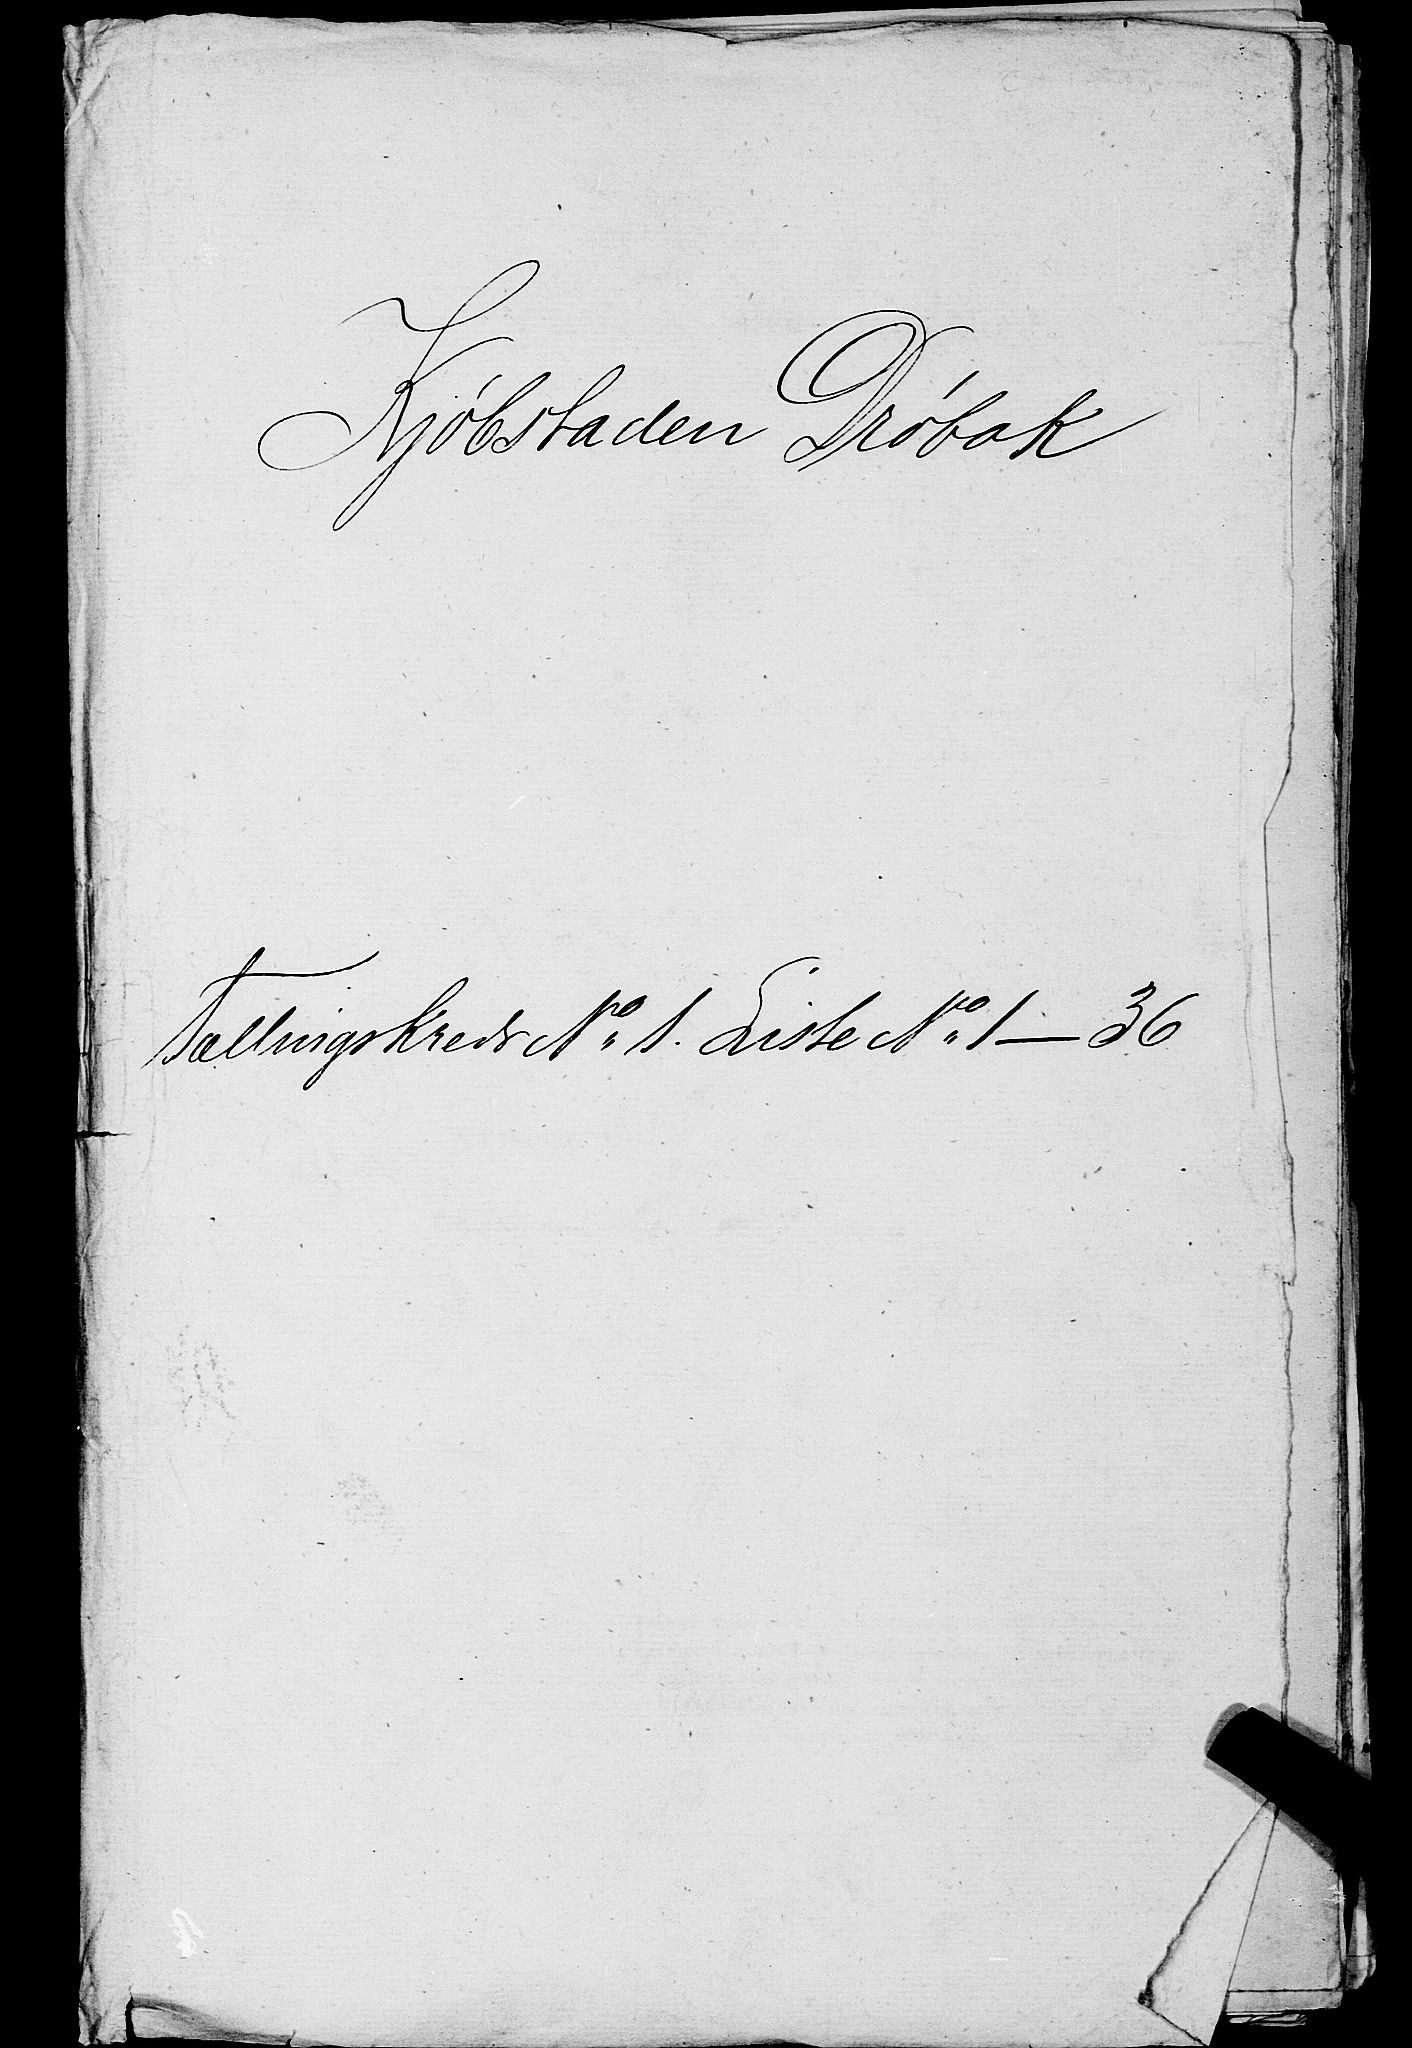 Kjöbstaden Dröbak
Tællingskreds No 1. Liste No 1 — 36